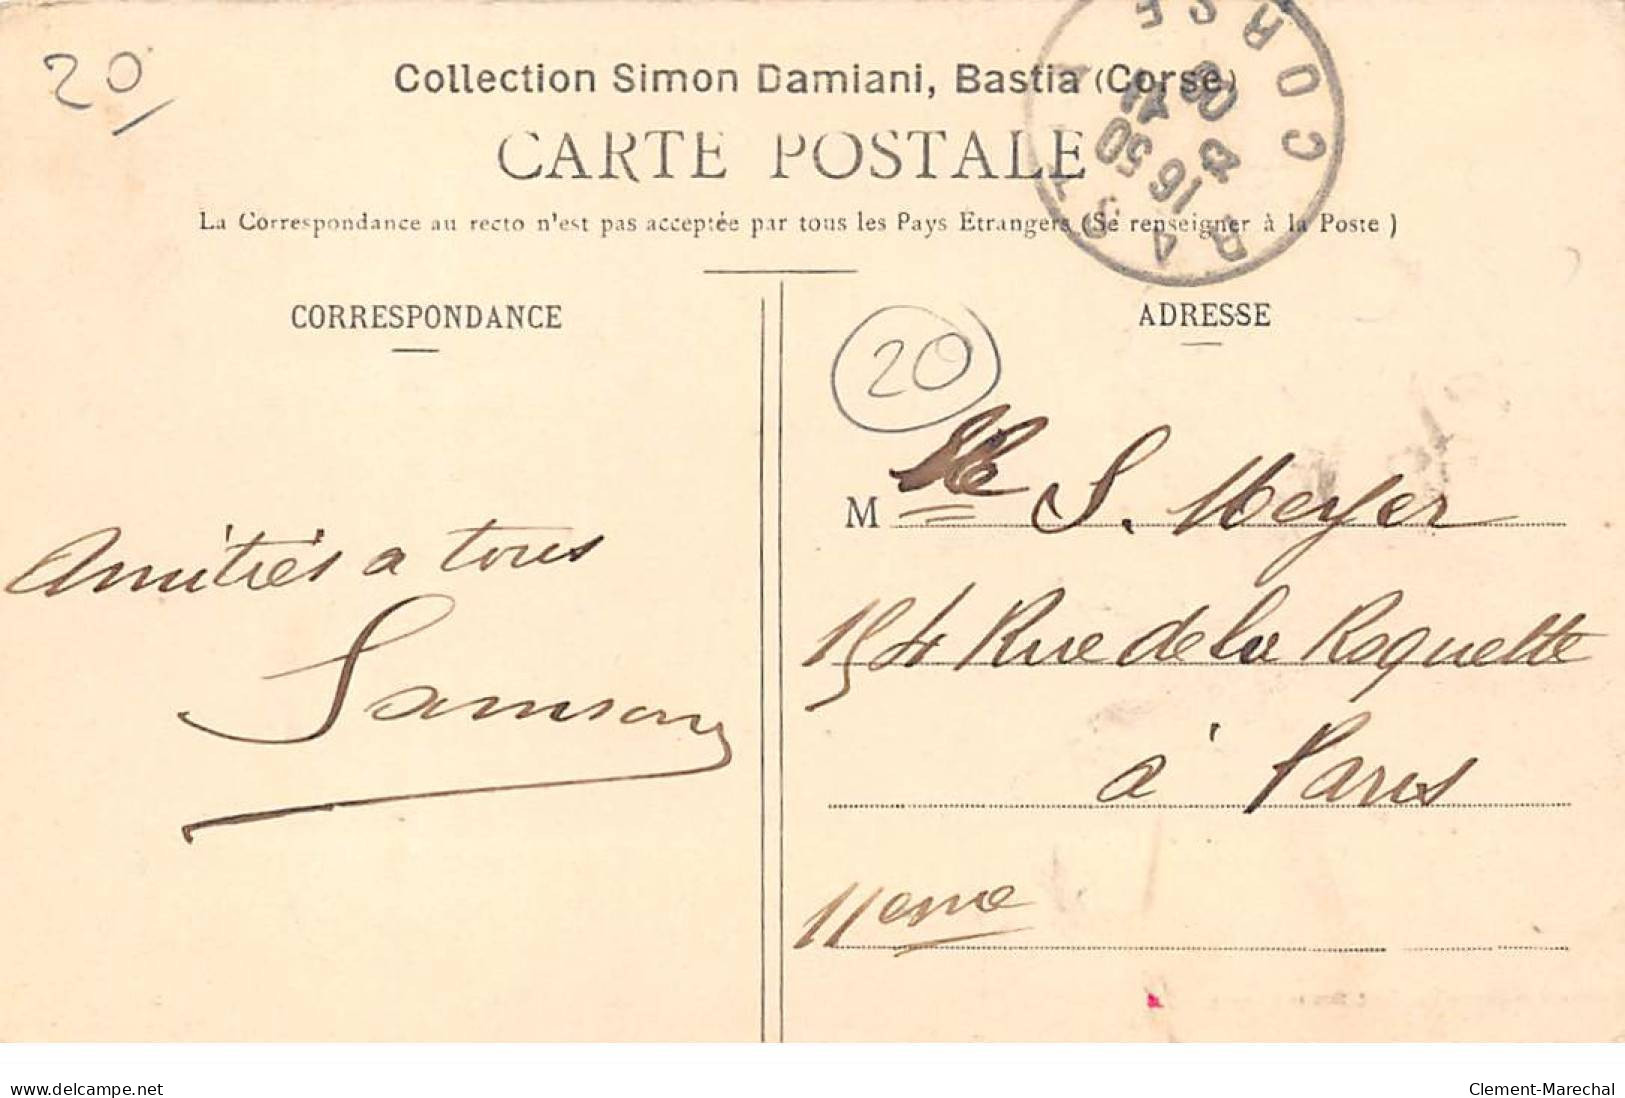 20
Collection Simon Damiani, Bastia (Corse)
CARTE POSTALE
La Correspondance au recto n'est pas acceptée par tous les Pays Etrangers (Se renseigner à la Poste)
CORSE
16 50
4
CORRESPONDANCE
Amitiés a tous
Samson
ADRESSE
20
Mlle S. Meyer
154 Rue de la Roquette
à Paris
11eme
www.delcampe.net
Clement-Marechal